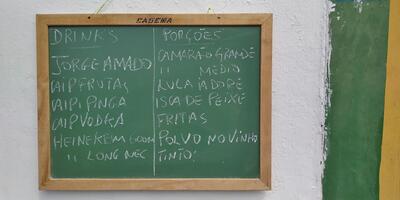 CASEMA
DRINKS
JORGE AMADO
CAIPFRUTAS
CAIPIPINGA
CAIPVODKA
HEINEKEM 600ML
" LONG NEC
PORÇÕES
CAMARÃO GRANDE
" MÉDIO
LULA A DORE
ISCA DE PEIXE
FRITAS
POLVO NO VINHO
TINTO!